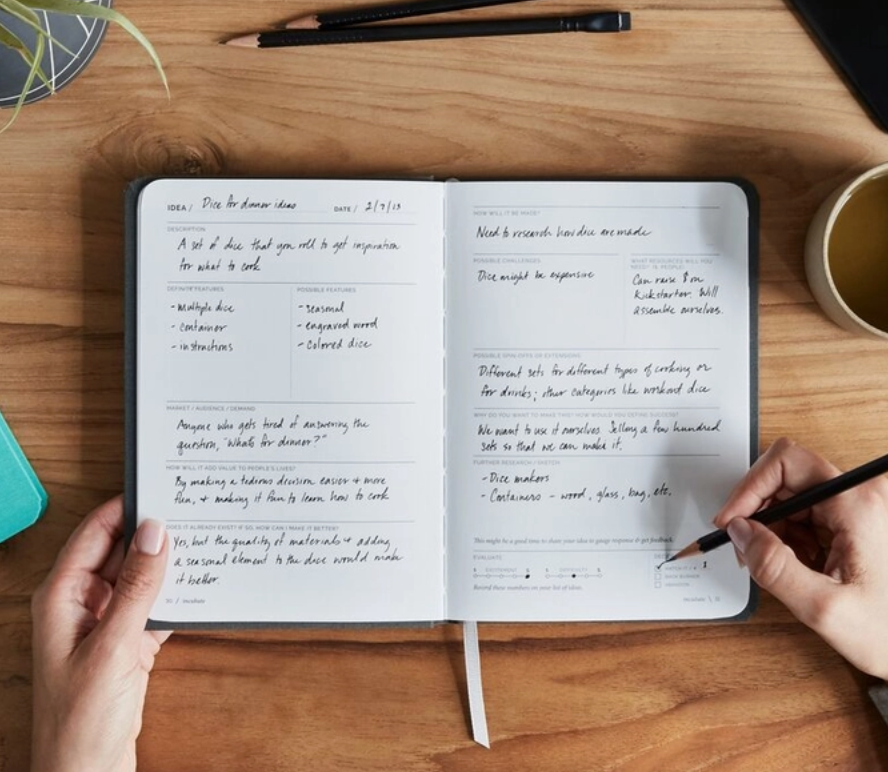 IDEA / Dice for dinner ideas DATE / 2/7/13
DESCRIPTION
A set of dice that you roll to get inspiration
for what to cook
DEFINITE FEATURES
- multiple dice
- container
- instructions
POSSIBLE FEATURES
- seasonal
- engraved wood
- colored dice
MARKET / AUDIENCE / DEMAND
Anyone who gets tired of answering the
question, "What's for dinner?"
HOW WILL IT ADD VALUE TO PEOPLE'S LIVES?
By making a tedious decision easier + more
fun, + making it fun to learn how to cook
DOES IT ALREADY EXIST? IF SO, HOW CAN I MAKE IT BETTER?
Yes, but the quality of materials + adding
a seasonal element to the dice would make
it better.
30 / incubate
HOW WILL IT BE MADE?
Need to research how dice are made
POSSIBLE CHALLENGES
Dice might be expensive
WHAT RESOURCES WILL YOU
NEED? $, PEOPLE?
Can raise $ on
Kickstarter. Will
assemble ourselves.
POSSIBLE SPIN-OFFS OR EXTENSIONS
Different sets for different types of cooking or
for drinks; other categories like workout dice
WHY DO YOU WANT TO MAKE THIS? HOW WOULD YOU DEFINE SUCCESS?
We want to use it ourselves. Selling a few hundred
sets so that we can make it.
FURTHER RESEARCH / SKETCH
- Dice makers
- Containers - wood, glass, bag, etc.
This might be a good time to share your idea to gauge response & get feedback.
EVALUATE
EXCITEMENT
DIFFICULTY
Record these numbers on your list of ideas.
BACK BURNER
incubate \ 31